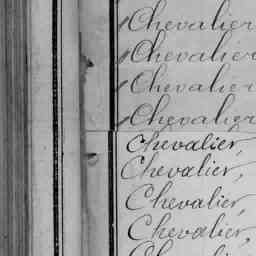 Chevalier
Chevalier
Chevalier
Chevalier
Chevalier,
Chevalier,
Chevalier,
Chevalier,